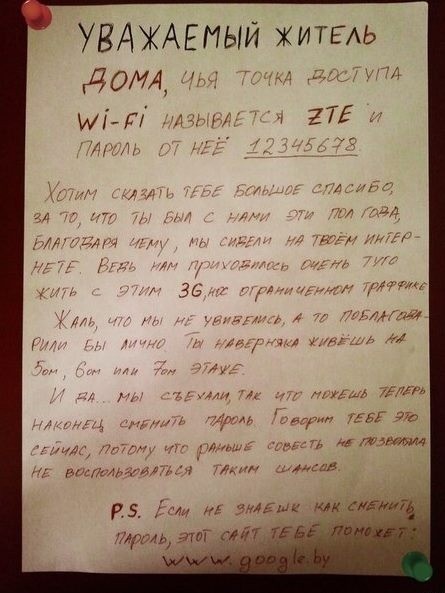 УВАЖАЕМЫЙ ЖИТЕЛЬ
ДОМА, ЧЬЯ ТОЧКА ДОСТУПА
Wi-Fi НАЗЫВАЕТСЯ ZTE И
ПАРОЛЬ ОТ НЕЁ 12345678.
ХОТИМ СКАЗАТЬ ТЕБЕ БОЛЬШОЕ СПАСИБО,
ЗА ТО, ЧТО ТЫ БЫЛ С НАМИ ЭТИ ПОЛ ГОДА,
БЛАГОДАРЯ ЧЕМУ, МЫ СИДЕЛИ НА ТВОЁМ ИНТЕР-
НЕТЕ. ВЕДЬ НАМ ПРИХОДИЛОСЬ ОЧЕНЬ ТУГО
ЖИТЬ С ЭТИМ 3G, ПОС ОГРАНИЧЕННОМ ТРАФФИКЕ
ЖАЛЬ, ЧТО МЫ НЕ УВИДЕЛИСЬ, А ТО ПОБЛАГОДА-
РИЛИ БЫ ЛИЧНО ТЫ НАВЕРНЯКА ЖИВЁШЬ НА
5ом, 6ом ИЛИ 7ом ЭТАЖЕ.
И ДА... МЫ СЪЕХАЛИ, ТАК ЧТО МОЖЕШЬ ТЕПЕРЬ
НАКОНЕЦ СМЕНИТЬ ПАРОЛЬ. ГОВОРИМ ТЕБЕ ЭТО
СЕЙЧАС, ПОТОМУ ЧТО РАНЬШЕ СОВЕСТЬ НЕ ПОЗВОЛЯЛА
НЕ ВОСПОЛЬЗОВАТЬСЯ ТАКИМ ШАНСОВ.
P.S. ЕСЛИ НЕ ЗНАЕШЬ КАК СМЕНИТЬ
ПАРОЛЬ, ЭТОТ САЙТ ТЕБЕ ПОМОЖЕТ:
www.google.by